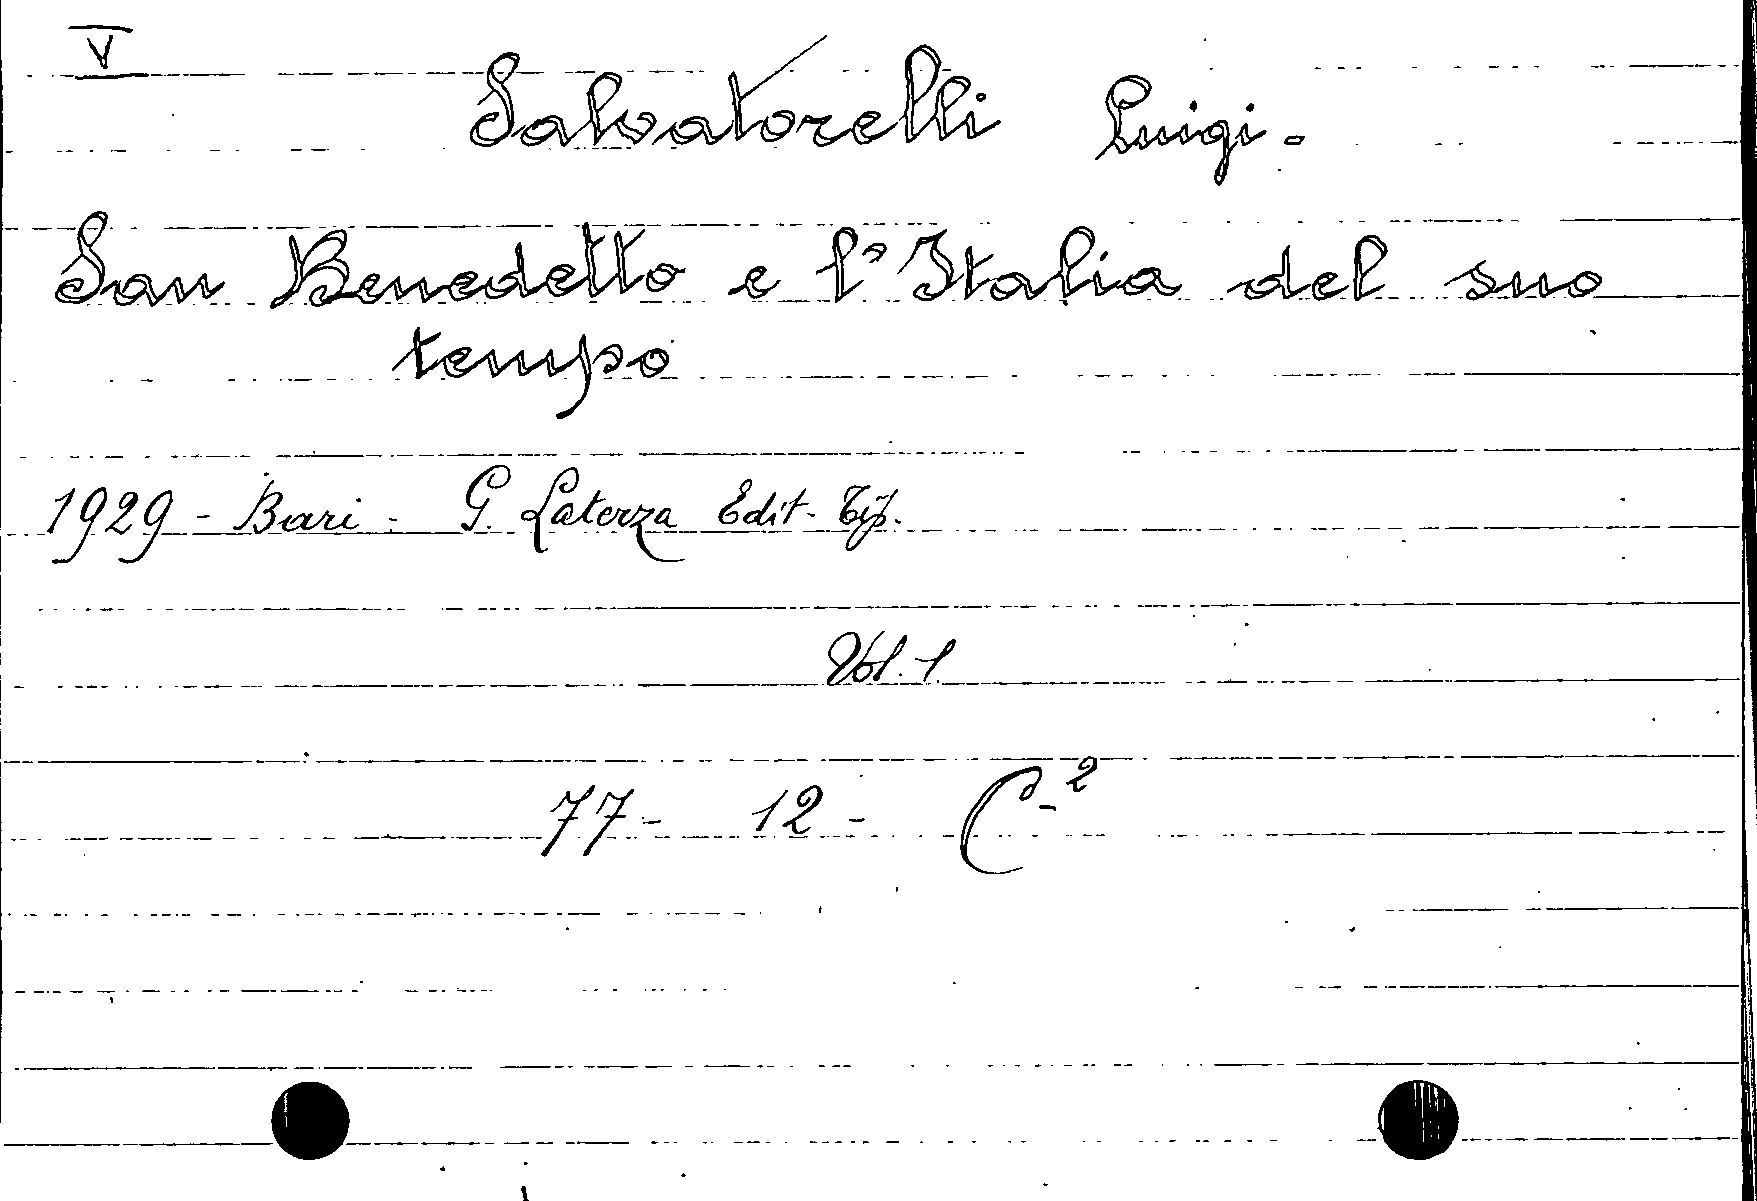 V
Salvatorelli Luigi.
San Benedetto e l'Italia del suo
tempo
1929 - Bari - G. Laterza Edit. Tip.
Vol. 1
77 - 12 - C-2